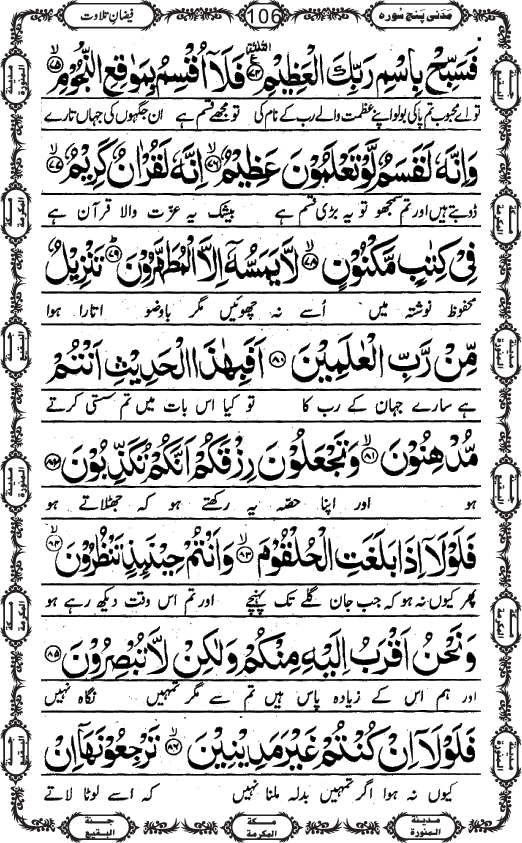 مَدَنی پنج سُورہ
106
فیضانِ تلاوت
فَسَبِّحْ بِاسْمِ رَبِّكَ الْعَظِیْمِ۠ۚ(۷۴) فَلَاۤ اُقْسِمُ بِمَوٰقِعِ النُّجُوْمِۙ(۷۵)
تو اے محبوب تم پاکی بولو اپنے عظمت والے رب کے نام کی تو مجھے قسم ہے ان جگہوں کی جہاں تارے
وَ اِنَّهٗ لَقَسَمٌ لَّوْ تَعْلَمُوْنَ عَظِیْمٌۙ(۷۶) اِنَّهٗ لَقُرْاٰنٌ كَرِیْمٌۙ(۷۷)
ڈوبتے ہیں اور تم سمجھو تو یہ بڑی قسم ہے بیشک یہ عزّت والا قرآن ہے
فِیْ كِتٰبٍ مَّكْنُوْنٍۙ(۷۸) لَّا یَمَسُّهٗۤ اِلَّا الْمُطَهَّرُوْنَؕ(۷۹) تَنْزِیْلٌ
محفوظ نوشتہ میں اُسے نہ چھوئیں مگر باوضو اتارا ہوا
مِّنْ رَّبِّ الْعٰلَمِیْنَ(۸۰) اَفَبِهٰذَا الْحَدِیْثِ اَنْتُمْ
ہے سارے جہان کے رب کا تو کیا اس بات میں تم سستی کرتے
مُّدْهِنُوْنَۙ(۸۱) وَ تَجْعَلُوْنَ رِزْقَكُمْ اَنَّكُمْ تُكَذِّبُوْنَ(۸۲)
ہو اور اپنا حصّہ یہ رکھتے ہو کہ جھٹلاتے ہو
فَلَوْلَاۤ اِذَا بَلَغَتِ الْحُلْقُوْمَۙ(۸۳) وَ اَنْتُمْ حِیْنَىٕذٍ تَنْظُرُوْنَۙ(۸۴)
پھر کیوں نہ ہو کہ جب جان گلے تک پہنچے اور تم اس وقت دیکھ رہے ہو
وَ نَحْنُ اَقْرَبُ اِلَیْهِ مِنْكُمْ وَ لٰكِنْ لَّا تُبْصِرُوْنَ(۸۵)
اور ہم اس کے زیادہ پاس ہیں تم سے مگر تمہیں نگاہ نہیں
فَلَوْلَاۤ اِنْ كُنْتُمْ غَیْرَ مَدِیْنِیْنَۙ(۸۶) تَرْجِعُوْنَهَاۤ اِنْ
کیوں نہ ہوا اگر تمہیں بدلہ ملنا نہیں کہ اسے لوٹا لاتے
مدينة المنورة
مكة المكرمة
جنة البقيع